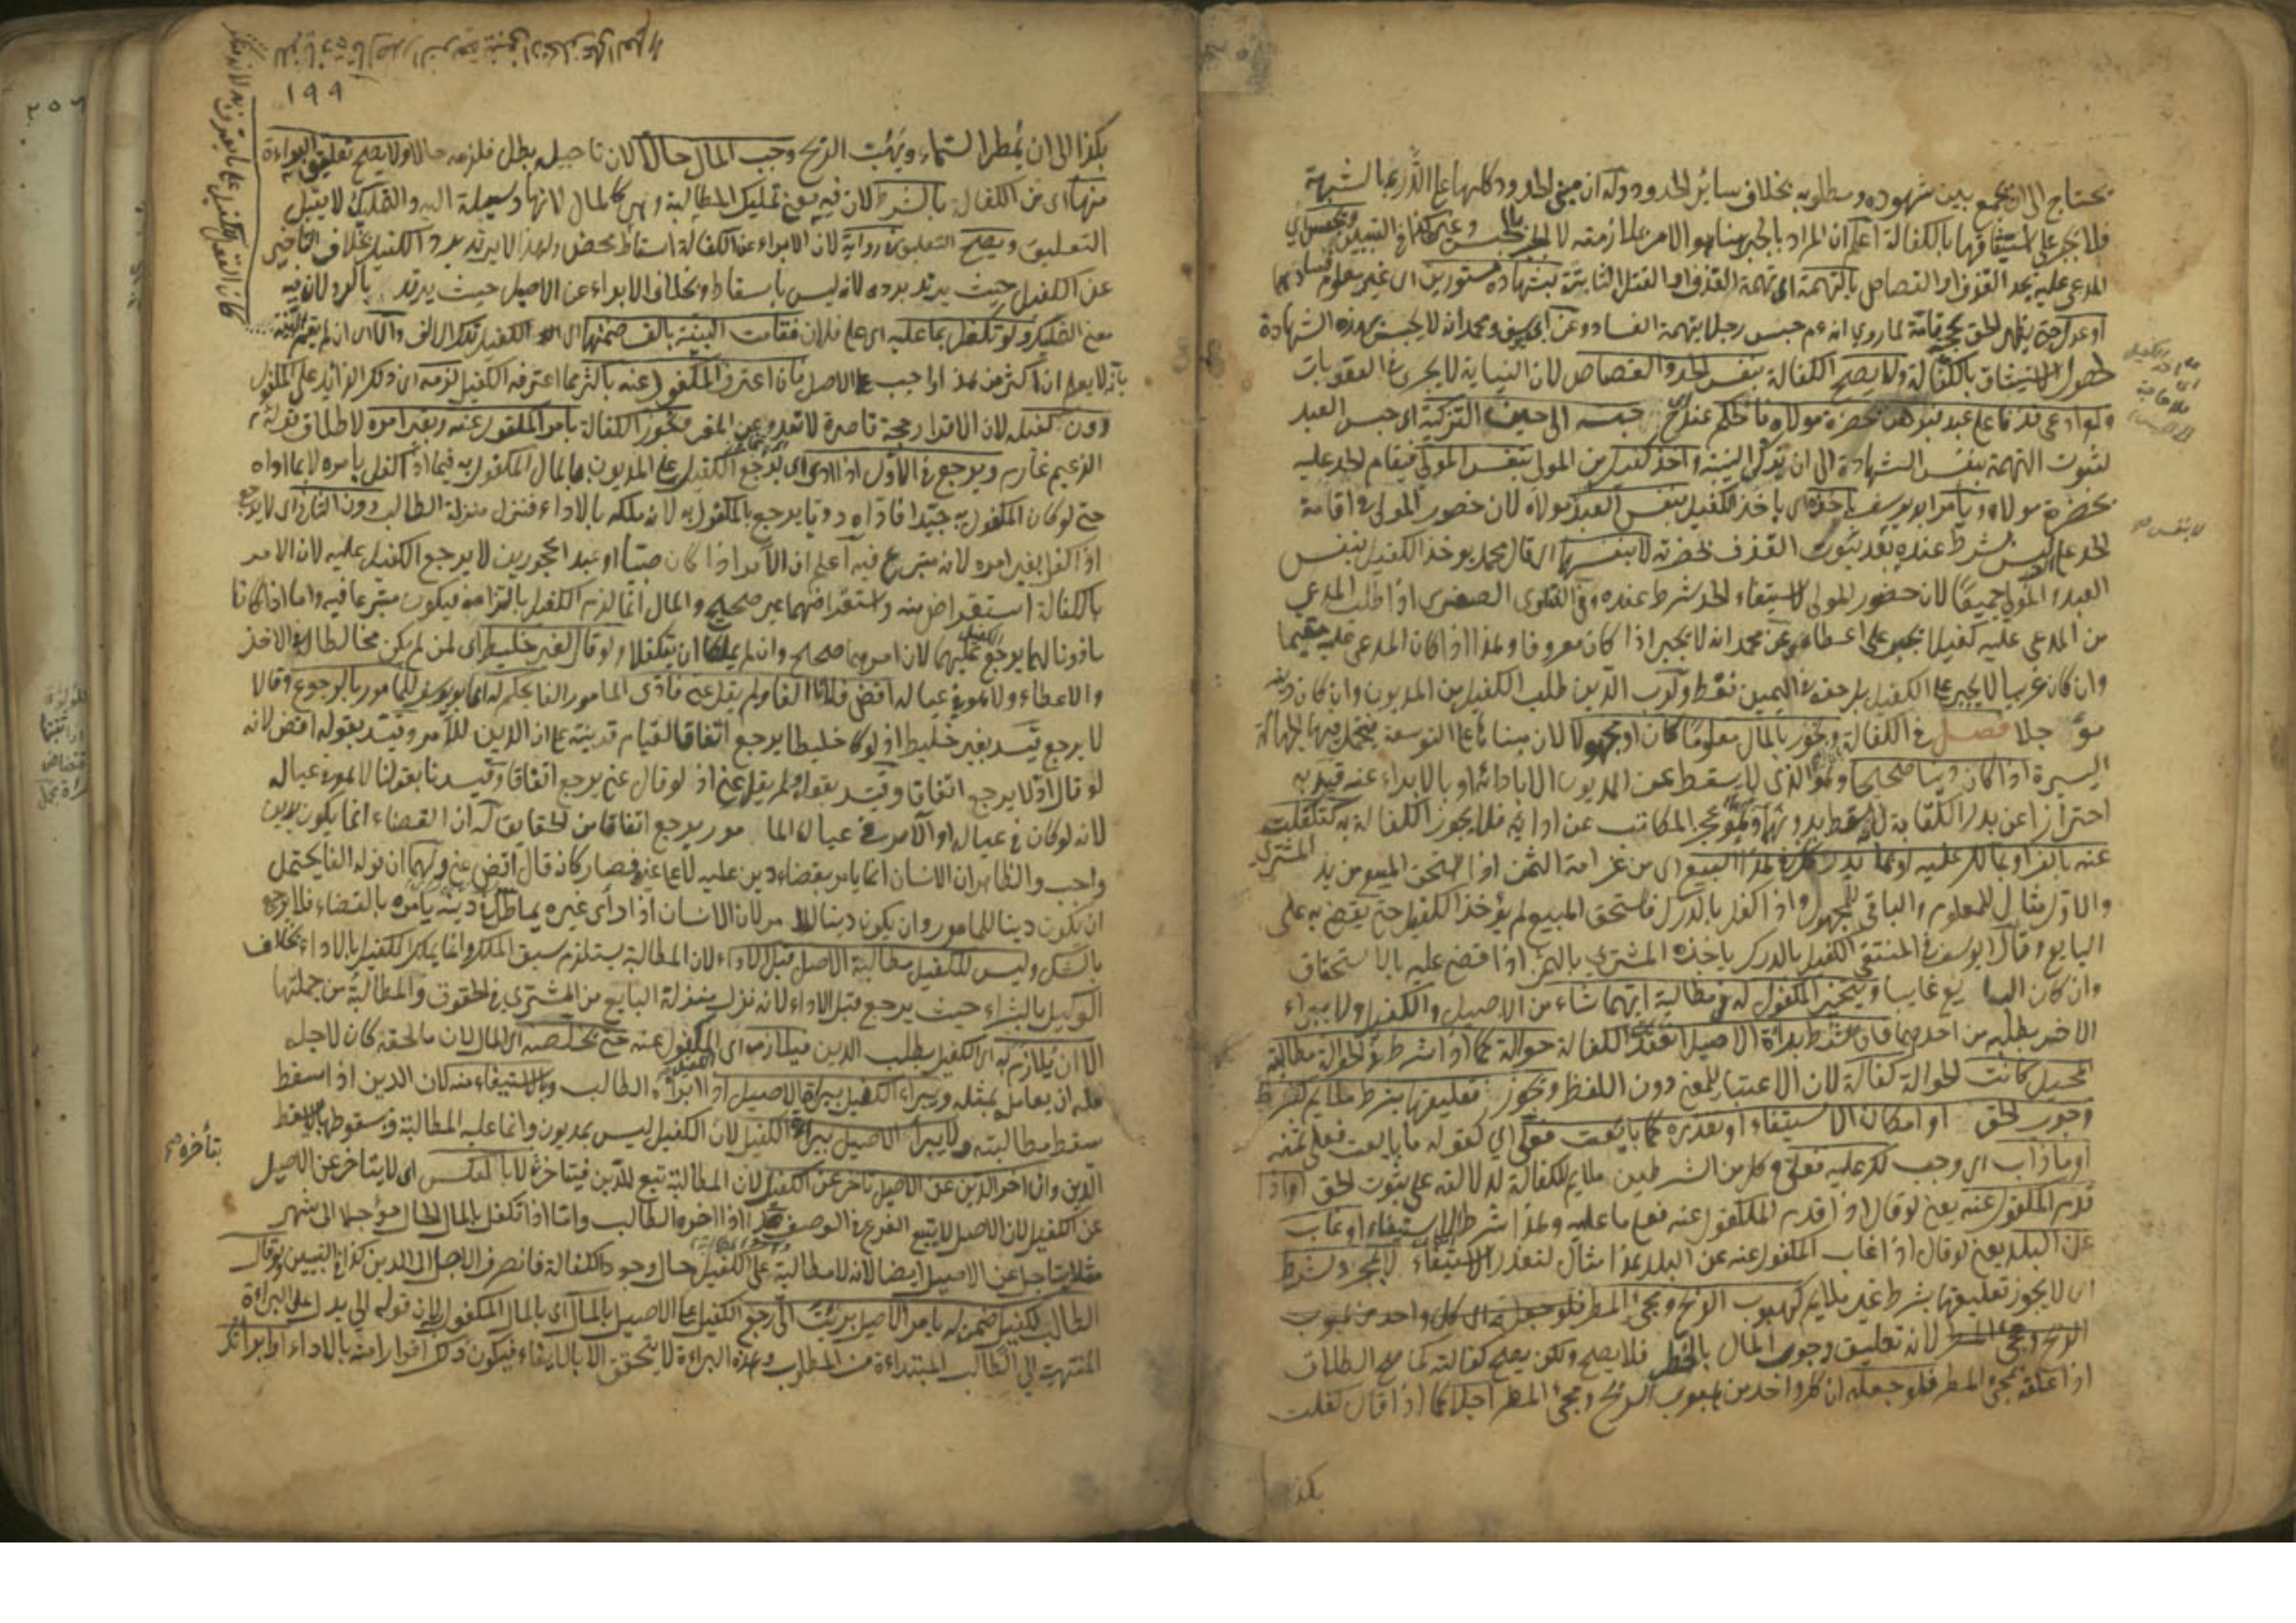 يحتاج الى ان يجمع بين شهوده ومطلوبه بخلاف سائر الحدود وله ان مبنى الحدود كلها على الدرء بالشبهة
فلا يجبر على استيثاقها بالكفالة اعلم ان المراد بالجبر هنا هو الامر بالملازمة لا الجبر بالحبس وغيره كذا في التبيين ويحبس اي
المدعى عليه بحد القذف او القصاص بالتهمة اي تهمة القذف او القتل الثابتة بشهادة مستورين اى غير معلوم
او عدل حتى يظهر الحق بحجة تامة لما روي انه عم حبس رجلا بتهمة الفساد وعن ابي يوسف ومحمد انه لا يحبس بهذه الشهادة
لحصول الاستيثاق بالكفالة ولا يصح الكفالة بنفس الحد والقصاص لان النيابة لا يجرى في العقوبات
ولو ادعى قذفا على عبد فبرهن بحضرة مولاه فالحكم عند ح حبسه الى حين التزكية اى حبس العبد
لثبوت التهمة بنفس الشهادة الى ان يزكى البينة واخذ كفيل من المولى بنفس المولى فيقام الحد عليه
بحضرة مولاه ويأمر ابو يوسف باخذه اى باخذ الكفيل بنفس العبد ومولاه لان حضور المولى في اقامة
الحد على العبد ليس بشرط عنده بعد ثبوت القذف بحضرته لا بنفسها اى قال محمد يوخذ الكفيل بنفس
العبد والمولى جميعا لان حضور المولى لاستيفاء الحد شرط عنده وفي الفتاوى الصغرى اذا طلب المدعي
من المدعى عليه كفيلا يجبر على اعطائه وعن محمد انه لا يجبر اذا كان معروفا وهذا اذا كان المدعى عليه مقيما
وان كان غريبا لا يجبر على الكفيل بل حقه في اليمين فقط ولرب الدين طلب الكفيل من المديون وان كان دينه
مؤجلا فصل في الكفالة ويجوز بالمال معلوما كان او مجهولا لان مبناها على التوسعة فيتحمل فيها الجهالة
اليسيرة اذا كان دينا صحيحا وهو الذى لا يسقط عن المديون الا بادائه او بالابراء عنه قيد به
احترازا عن بدل الكتابة لانه يسقط بدونهما وهو عجز المكاتب عن ادائه فلا يجوز الكفالة به كتكفلت
عنه بالف او بما لك عليه او بما يدركك في هذا البيع اى من غرامة الثمن اذا استحق المبيع من يد المشتري
والاول مثال للمعلوم والباقي للمجهول واذا كفل بالدرك فاستحق المبيع لم يؤخذ الكفيل حتى يقضى به على
البايع وقال ابو يوسف في المنتقى الكفيل بالدرك ياخذه المشتري بالثمن اذا قضى عليه بالاستحقاق
وان كان البايع غايبا ويتخير المكفول له في مطالبة ايهما شاء من الاصيل والكفيل ولا يبراء
الاخر بطلبه من احدهما فان شرط براءة الاصيل انعقدت الكفالة حوالة كما اذا شرط في الحوالة مطالبة
المحيل كانت الحوالة كفالة لان الاعتبار للمعنى دون اللفظ ويجوز تعليقها بشرط ملايم كشرط
وجوب الحق او امكان الاستيفاء او تعذره كما بايعت فعلي اي كقوله ما بايعت فعلي ثمنه
او ما ذاب اى وجب لك عليه فعلي وكل من الشرطين ملايم للكفالة لدلالته على ثبوت الحق او اذا
قدم المكفول عنه يعنى لو قال اذا قدم المكفول عنه فعلي ما عليه وهذا شرط لامكان الاستيفاء او غاب
عن البلد يعنى لو قال اذا غاب المكفول عنه عن البلد هذا مثال لتعذر الاستيفاء لا بمجرد شرط
اى لا يجوز تعليقها بشرط غير ملايم كهبوب الريح ومجئ المطر فلو جعله اى كل واحد من هبوب
الريح ومجئ المطر لانه تعليق وجوب المال بالخطر فلا يصح ولكن يصح كفالته كما صح الطلاق
اذا علقه بمجئ المطر فلو جعله اى كل واحد من هبوب الريح ومجئ المطر اجلا كما اذا قال كفلت
بكذا
لا بنفس صح
١٩٩
بكذا الى ان يمطر السماء ويهبت الريح وجب المال حالا لان تاجيله بطل فلزمه حالا ولا يصح تعليق البراءة
منها اى من الكفالة بالشرط لان فيه معنى تمليك المطالبة وهى كالمال لانها وسيلة اليه والتمليك لا يقبل
التعليق ويصح التعليق في رواية لان الابراء عن الكفالة اسقاط محض ولهذا لا يرتد برد الكفيل بخلاف التاخير
عن الكفيل حيث يرتد برده لانه ليس باسقاط وبخلاف الابراء عن الاصيل حيث يرتد بالرد لان فيه
معنى التمليك ولو تكفل بما عليه اى على فلان فقامت البينة بالف ضمنها اى الكفيل تلك الالف والا اى ان لم يقم البينة
بانه لا يعلم ان اكثر من هذا واجب على الاصيل فان اعترف المكفول عنه باكثر مما اعترف الكفيل لزمه اى ذلك الزائد على المكفول
دون كفيله لان الاقرار حجة قاصرة لا تعدو عن المقر ويجوز الكفالة بامر المكفول عنه وبغير امره لاطلاق قوله عم
الزعيم غارم ويرجع في الاول اذا ادى اى يرجع الكفيل على المديون بالمال المكفول به فيما اذا كفل بامره لا بما اداه
حتى لو كان المكفول به جيدا فاداه رديا يرجع بالمكفول به لانه ملكه بالاداء فنزل منزلة الطالب دون الثاني اى لا يرجع
اذا كفل بغير امره لانه متبرع فيه اعلم ان الآمر اذا كان صبيا او عبدا محجورين لا يرجع الكفيل عليه لان الامر
بالكفالة استقراض منه واستقراضهما غير صحيح والمال انما لزم الكفيل بالتزامه فيكون متبرعا فيه واما اذا كانا
ماذونا لهما يرجع الكفيل عليهما لان امرهما صحيح وان لم يملكا ان يتكفلا ولو قال لغير خليط اى لمن لم يكن مخالطا في الاخذ
والاعطاء ولا هو في عياله اقض فلانا الفا ولم يقل عني فادى المامور الفا يحكم له ابو يوسف للمامور بالرجوع وقالا
لا يرجع قيد بغير خليط اذ لو كا خليطا يرجع اتفاقا لقيام قرينة على ان الدين للآمر وقيد بقوله اقض لانه
لو قال ادّ لا يرجع اتفاقا وقيد بقوله ولم يقل عني اذ لو قال عني يرجع اتفاقا وقيدنا بقولنا لا هو في عياله
لانه لو كان في عياله او الآمر في عيال الما مور يرجع اتفاقا من الحقايق له ان القضاء انما يكون بدين
واجب والظاهر ان الانسان انما يامر بقضاء دين عليه لا على غيره فصار كانه قال اقض عني ولهما ان قوله الفا يحتمل
ان يكون دينا للمامور وان يكون دينا للآ مر لان الانسان اذا رأى غيره يماطل دينه يأمره بالقضاء فلا يرجع
بالشك وليس للكفيل مطالبة الاصيل قبل الاداء لان المطالبة يستلزم سبق الملك وانما يملك الكفيل بالاداء بخلاف
الوكيل بالشراء حيث يرجع قبل الاداء لانه نزل منزلة البايع من المشتري في الحقوق والمطالبة من جملتها
الا ان يُلازم به اى الكفيل بطلب الدين فيلازم اى المكفول عنه حتى يخلصه اى المال لان ما لحقه كان لاجله
فله ان يعامل بمثله ويبراء الكفيل ببراءة الاصيل اذا ابراه الطالب وبالاستيفاء منه لان الدين اذا سقط
سقط مطالبته ولا يبرأ الاصيل ببراءة الكفيل لان الكفيل ليس بمديون وانما عليه المطالبة وسقوطها لا يسقط
الدين وان اخر الدين عن الاصيل تاخر عن الكفيل لان المطالبة تبع للدين فيتاخر لا بالعكس اى لا يتاخر عن الاصيل
بتأخره صح
عن الكفيل لان الاصل لا يتبع الفرع في الوصف هذا اذا اخره الطالب واما اذا تكفل بالمال الحال مؤجلا الى شهر
مثلا يتاجل عن الاصيل ايضا لانه لا مطالبة على الكفيل حال وجود الكفالة فانصرف الاجل الى الدين كذا في التبيين ولو قال
الطالب لكفيل ضمن له بامر الاصيل برئت الي رجع الكفيل على الاصيل بالمال اى بالمال المكفول لان قوله الي يدل على البراءة
المنتهية الى الطالب المبتداءة من المطلوب وهذه البراءة لا يتحقق الا بالايفاء فيكون ذلك اقرارا منه بالاداء او ابرأتك